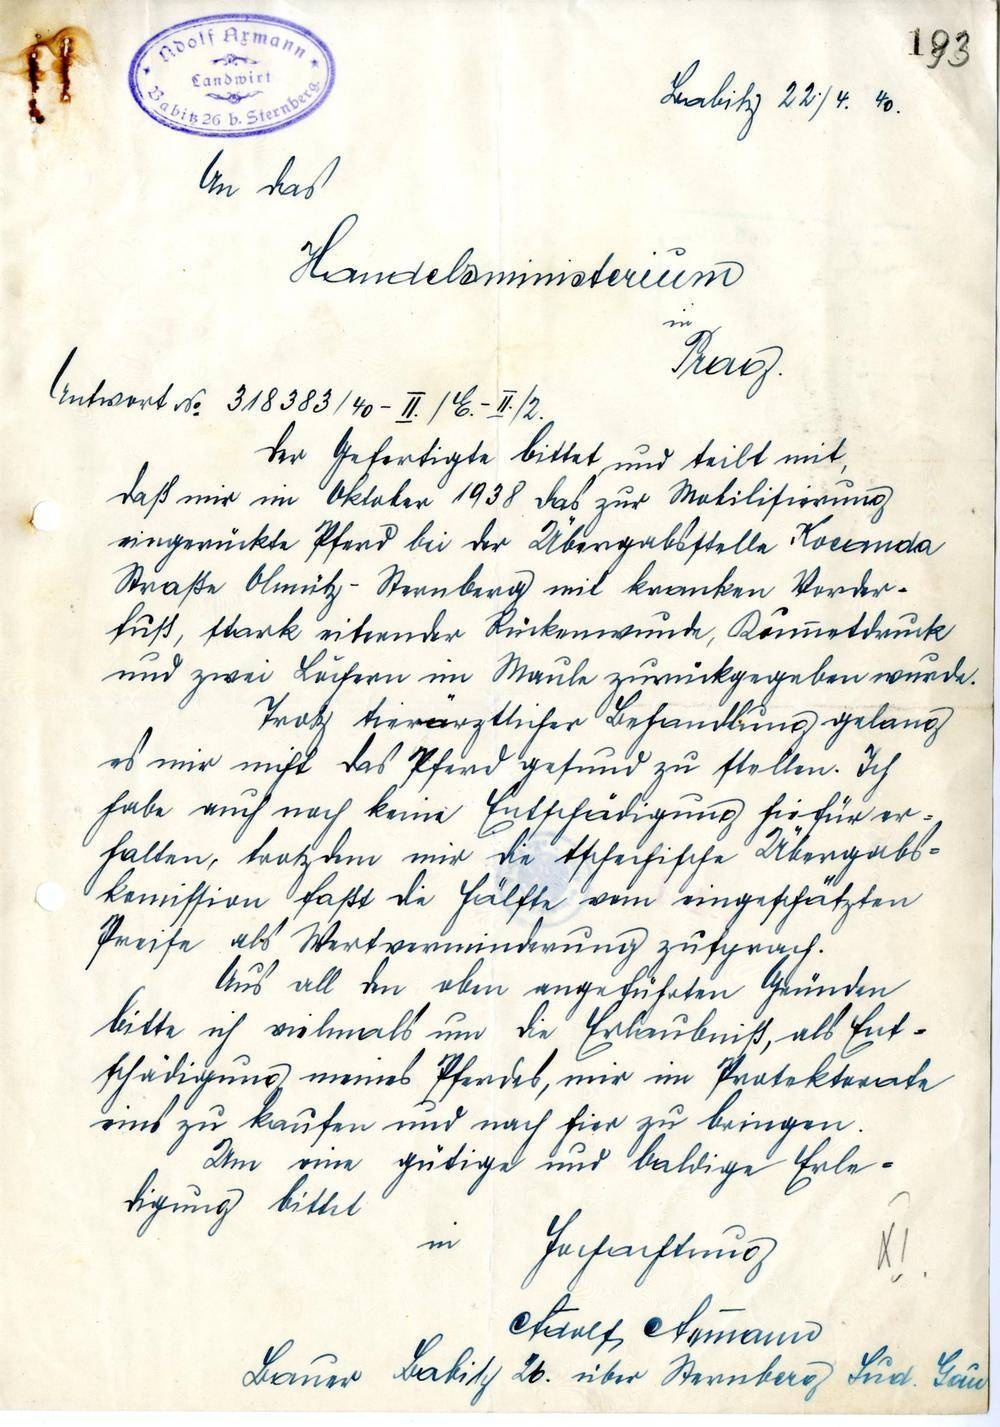 Adolf Axmann
Landwirt
Babitz 26 b. Sternberg
193
Babitz 22./4. 40.
An das
Handelsministerium
in
Prag.
Antwort No. 318383/40-II./E.-II./2.
Der Gefertigte bittet und teilt mit,
daß mir im Oktober 1938 das zur Mobilisierung
eingerückte Pferd bei der Übergabsstelle Kocanda
Straße Olmütz-Sternberg mit kranken Vorder-
fuß, stark eiternder Rückenwunde, Kommetdruck
und zwei Löchern im Maule zurückgegeben wurde.
Trotz tierärztlicher Behandlung gelang
es mir nicht das Pferd gesund zu stellen. Ich
habe auch noch keine Entschädigung hiefür er-
halten, trotzdem mir die tschechische Übergabs-
komission faßt die Hälfte vom eingeschätzten
Preise als Wertverminderung zusprach.
Aus all den oben angeführten Gründen
bitte ich vielmals um die Erlaubniß, als Ent-
schädigung meines Pferdes, mir im Protektorate
eins zu kaufen und nach hier zu bringen.
Um eine gütige und baldige Erle-
digung bittet
in Hochachtung
Adolf Axmann
Bauer Babitz 26. über Sternberg Sud. Gau